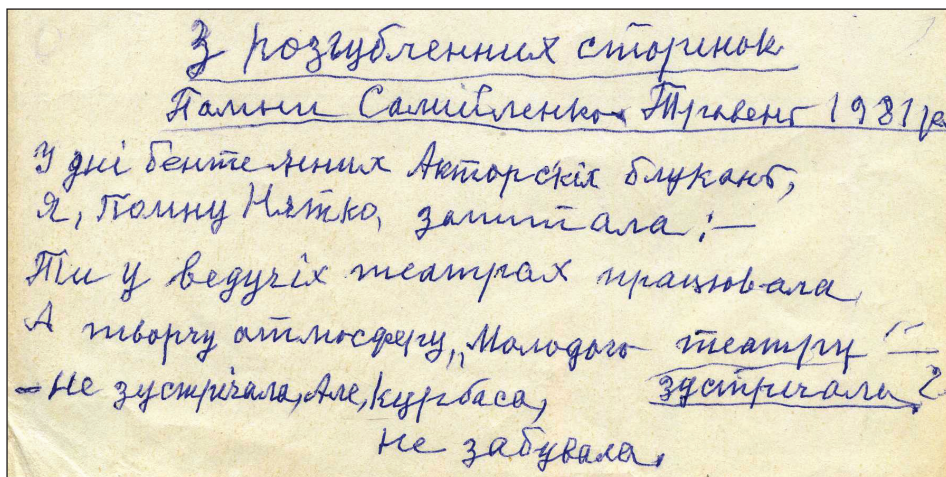 З розгубленних сторінок
Полини Самійленко Травень 1981 р.
У дні бентежних Акторскіх блукань,
Я, Полину Нятко, запитала:—
Ти у ведучіх театрах працювала,
А творчу атмосферу, „Молодого театру"—
зустрічала?
— Не зустрічала, Але, Курбаса,
не забувала.